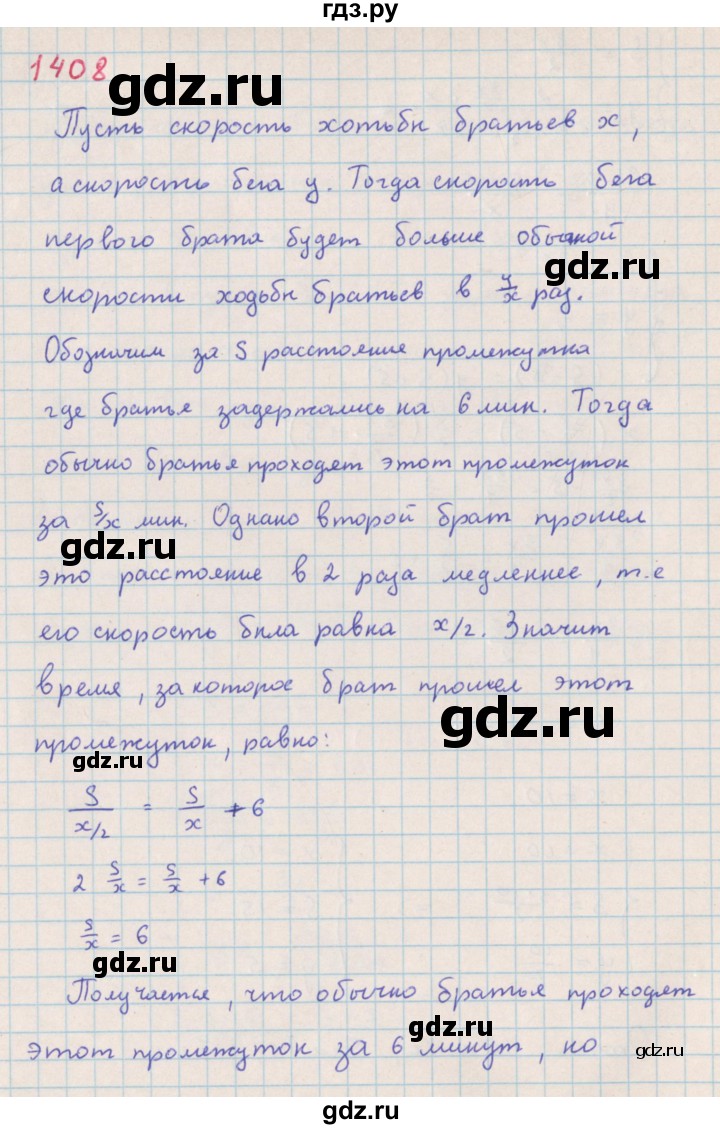 гдз.ру
1408
gdz.ru
Пусть скорость хотьбы братьев x,
а скорость бега y. Тогда скорость бега
первого брата будет больше обычной
gdz.ru
скорости ходьбы братьев в y/x раз.
Обозначим за S расстояние промежутка
где братья задержались на 6 мин. Тогда
обычно братья проходят этот промежуток
за S/x мин. Однако второй брат прошел
gdz.ru
это расстояние в 2 раза медленнее, т.е
его скорость была равна x/2. Значит
время, за которое брат прошел этот
gdz.ru
промежуток, равно:
gdz.ru
S/x/2 = S/x + 6
2 S/x = S/x + 6
S/x = 6
gdz.ru
Получается, что обычно братья проходят
gdz.ru
этот промежуток за 6 минут, но
gdz.ru
gdz.ru